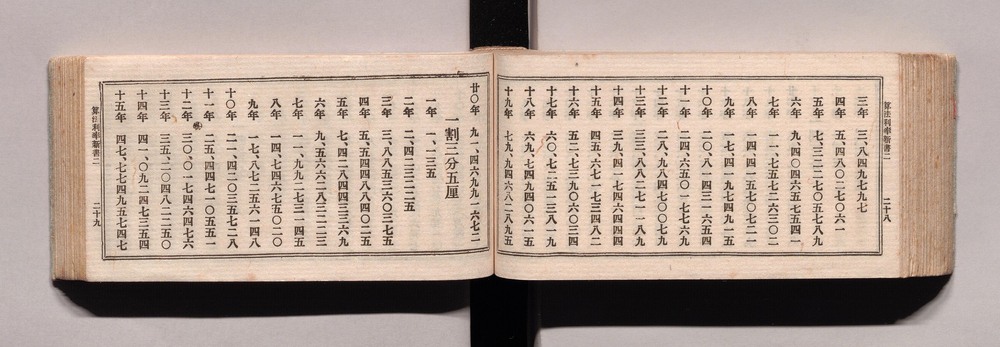 算法利率新書二
二十八
三年 三、八四九七九七
四年 五、四八〇二七〇六一
五年 七、三二二七〇五七八九
六年 九、四〇四六五七五四一
七年 一一、七五七二六三〇二
八年 一四、四一五七〇七二一
九年 一七、四一九七四九一五
十〇年 二〇、八一四三一六五四
十一年 二四、六五〇一七七六九
十二年 二八、九八四七〇〇七九
十三年 三三、八八二七一一八九
十四年 三九、四一七四六四四四
十五年 四五、六七一七三四八二
十六年 五二、七三九〇六〇三四
十七年 六〇、七二五一三八一九
十八年 六九、七四九四〇六一五
十九年 七九、九四六八二八九五
廿〇年 九一、四六九九一六七二
一割三分五厘
一年 一、一三五
二年 二、四二三二二五
三年 三、八八五三六〇三七五
四年 五、五四四八八四〇二五
五年 七、四二八四四三三六九
六年 九、五六六二八三二二三
七年 一一、九九二七三一四五
八年 一四、七四六七五〇二〇
九年 一七、八七二五六一四八
十〇年 二一、四二〇三五七二八
十一年 二五、四四七一〇五五一
十二年 三〇、〇一七四六四七六
十三年 三五、二〇四八二二五〇
十四年 四一、〇九二四七三五四
十五年 四七、七七四九五七四七
算法利率新書二
二十九